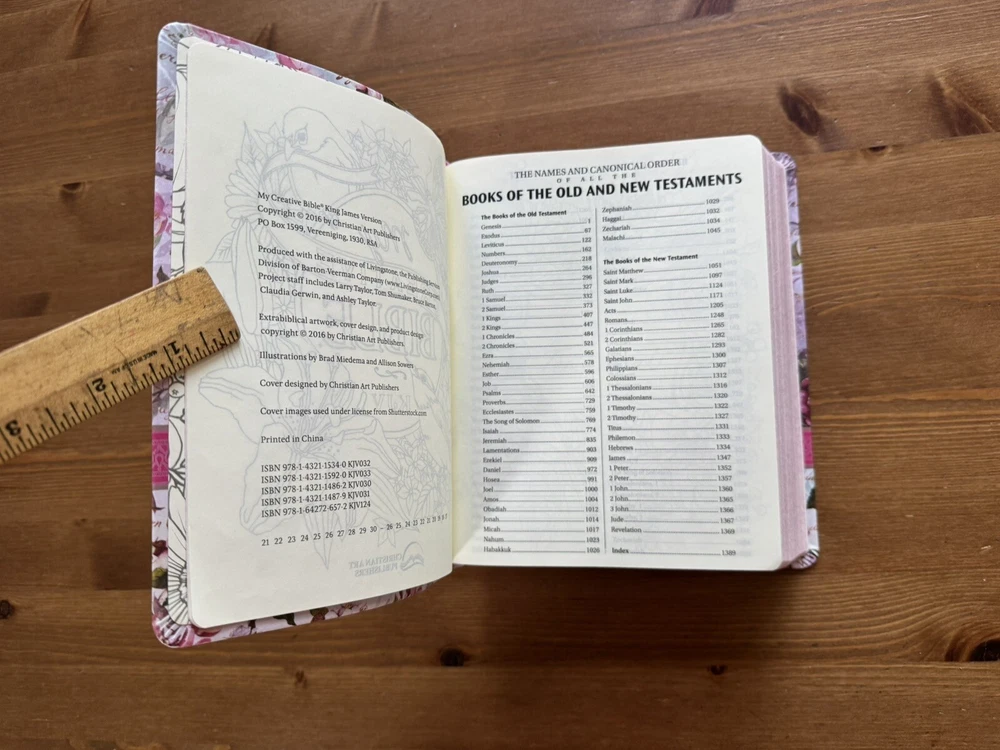 My Creative Bible® King James Version
Copyright © 2016 by Christian Art Publishers
PO Box 1599, Vereeniging, 1930, RSA
Produced with the assistance of Livingstone, the Publishing Services
Division of Barton-Veerman Company (www.LivingstoneCorp.com)
Project staff includes Larry Taylor, Tom Shumaker, Bruce Barton,
Claudia Gerwin, and Ashley Taylor
Extrabiblical artwork, cover design, and product design
copyright © 2016 by Christian Art Publishers
Illustrations by Brad Miedema and Allison Sowers
Cover designed by Christian Art Publishers
Cover images used under license from Shutterstock.com
Printed in China
ISBN 978-1-4321-1534-0 KJV032
ISBN 978-1-4321-1592-0 KJV033
ISBN 978-1-4321-1486-2 KJV030
ISBN 978-1-4321-1487-9 KJV031
ISBN 978-1-64272-657-2 KJV124
21 22 23 24 25 26 27 28 29 30 – 26 25 24 23 22 21
CHRISTIAN ART
PUBLISHERS
1
2
3
THE NAMES AND CANONICAL ORDER
OF ALL THE
BOOKS OF THE OLD AND NEW TESTAMENTS
The Books of the Old Testament
Genesis 1
Exodus 67
Leviticus 122
Numbers 162
Deuteronomy 218
Joshua 264
Judges 296
Ruth 327
1 Samuel 332
2 Samuel 373
1 Kings 407
2 Kings 447
1 Chronicles 484
2 Chronicles 521
Ezra 565
Nehemiah 578
Esther 596
Job 606
Psalms 642
Proverbs 729
Ecclesiastes 759
The Song of Solomon 769
Isaiah 774
Jeremiah 835
Lamentations 903
Ezekiel 909
Daniel 972
Hosea 991
Joel 1000
Amos 1004
Obadiah 1012
Jonah 1014
Micah 1017
Nahum 1023
Habakkuk 1026
Zephaniah 1029
Haggai 1032
Zechariah 1034
Malachi 1045
The Books of the New Testament
Saint Matthew 1051
Saint Mark 1097
Saint Luke 1124
Saint John 1171
Acts 1205
Romans 1248
1 Corinthians 1265
2 Corinthians 1282
Galatians 1293
Ephesians 1300
Philippians 1307
Colossians 1312
1 Thessalonians 1316
2 Thessalonians 1320
1 Timothy 1322
2 Timothy 1327
Titus 1331
Philemon 1333
Hebrews 1334
James 1347
1 Peter 1352
2 Peter 1357
1 John 1360
2 John 1365
3 John 1366
Jude 1367
Revelation 1369
Index 1389